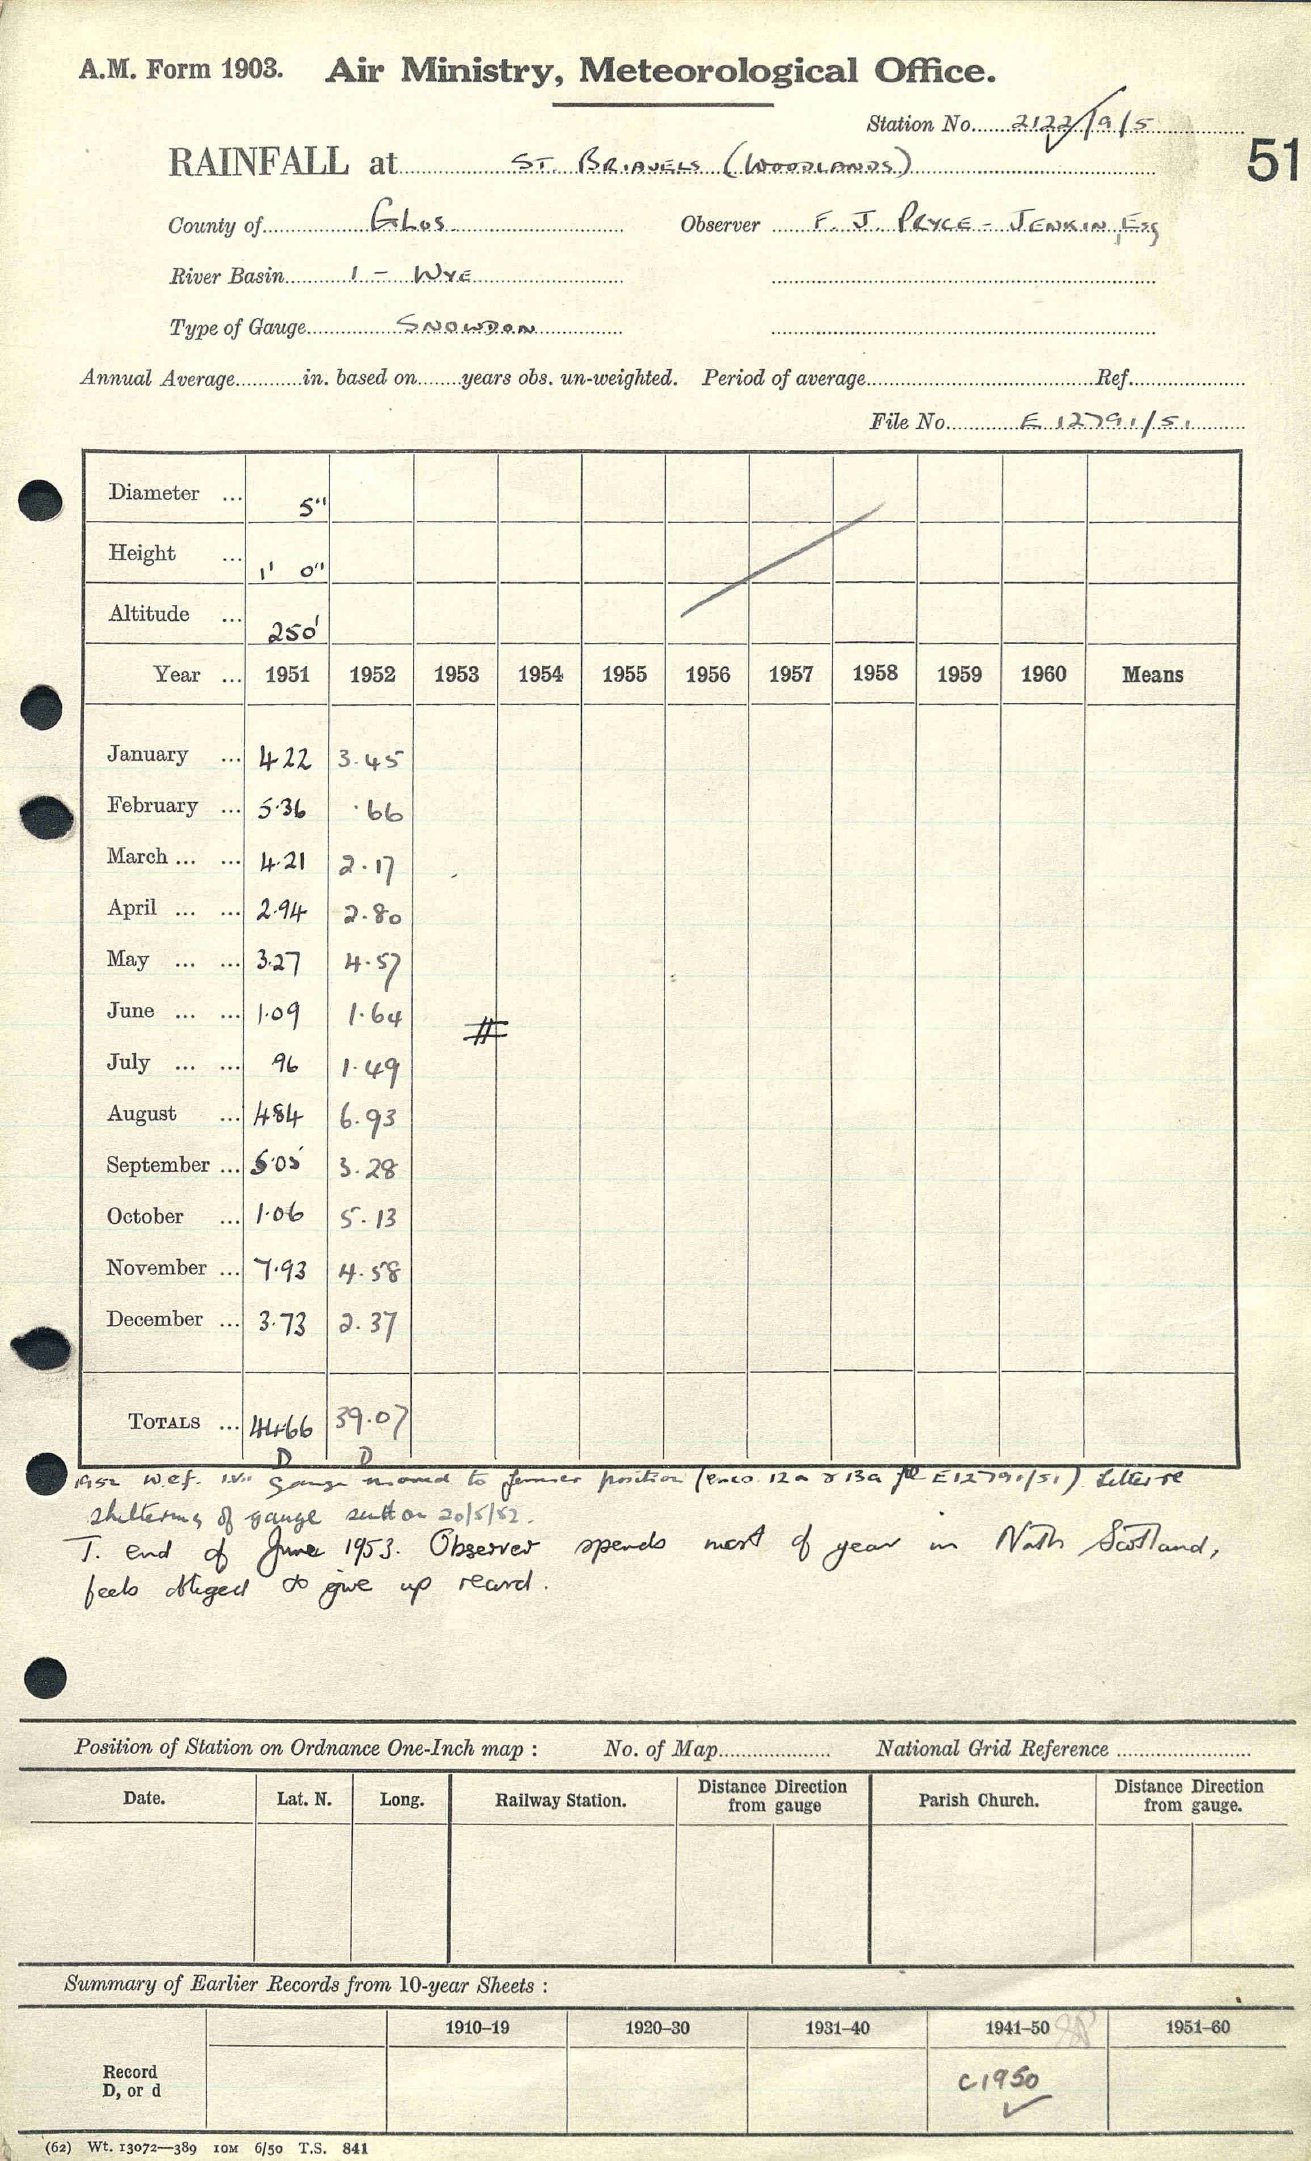 A.M. Form 1903. Air Ministry, Meteorological Office.
Station No. 2122/9/5
51
RAINFALL at ST. BRIAVELS (WOODLANDS)
County of GLOS Observer F. J. PRYCE-JENKIN, ESQ
River Basin 1 - WYE
Type of Gauge SNOWDON
Annual Average in. based on years obs. un-weighted. Period of average Ref.
File No. E 12791/51
Diameter ... 5"
Height ... 1' 0"
Altitude ... 250'
Year ... 1951 1952 1953 1954 1955 1956 1957 1958 1959 1960 Means
January ... 4.22 3.45
February ... 5.36 .66
March ... ... 4.21 2.17
April ... ... 2.94 2.80
May ... ... 3.27 4.57
June ... ... 1.09 1.64
#
July ... ... 96 1.49
August ... 4.84 6.93
September ... 5.05 3.28
October ... 1.06 5.13
November ... 7.93 4.58
December ... 3.73 2.37
TOTALS ... 44.66 39.07
D D
1952 w.e.f. 1.V. gauge moved to former position (encs. 12a & 13a file E12791/51) Letter re
sheltering of gauge sent on 20/5/52.
T. end of June 1953. Observer spends most of year in North Scotland,
feels obliged to give up record.
Position of Station on Ordnance One-Inch map : No. of Map National Grid Reference
Date. Lat. N. Long. Railway Station. Distance Direction from gauge Parish Church. Distance Direction from gauge.
Summary of Earlier Records from 10-year Sheets :
1910–19 1920–30 1931–40 1941–50 1951–60
Record
D, or d
c1950
(62) Wt. 13072—389 10M 6/50 T.S. 841